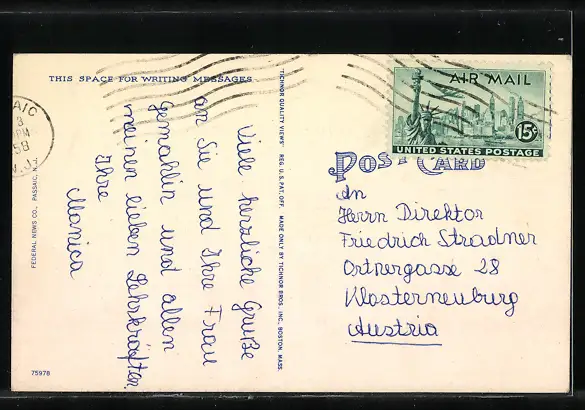 THIS SPACE FOR WRITING MESSAGES
Viele herzliche Grüße
an Sie und Ihre Frau
Gemahlin und allen
meinen lieben Lehrkräften
Ihre
Monica
FEDERAL NEWS CO., PASSAIC, N. J.
TICHNOR QUALITY VIEWS" REG. U.S. PAT. OFF. MADE ONLY BY TICHNOR BROS. INC., BOSTON, MASS.
75978
AIC
PM
58
AIR MAIL
15¢
UNITED STATES POSTAGE
POST CARD
An
Herrn Direktor
Friedrich Stradner
Ortnergasse 28
Klosterneuburg
Austria